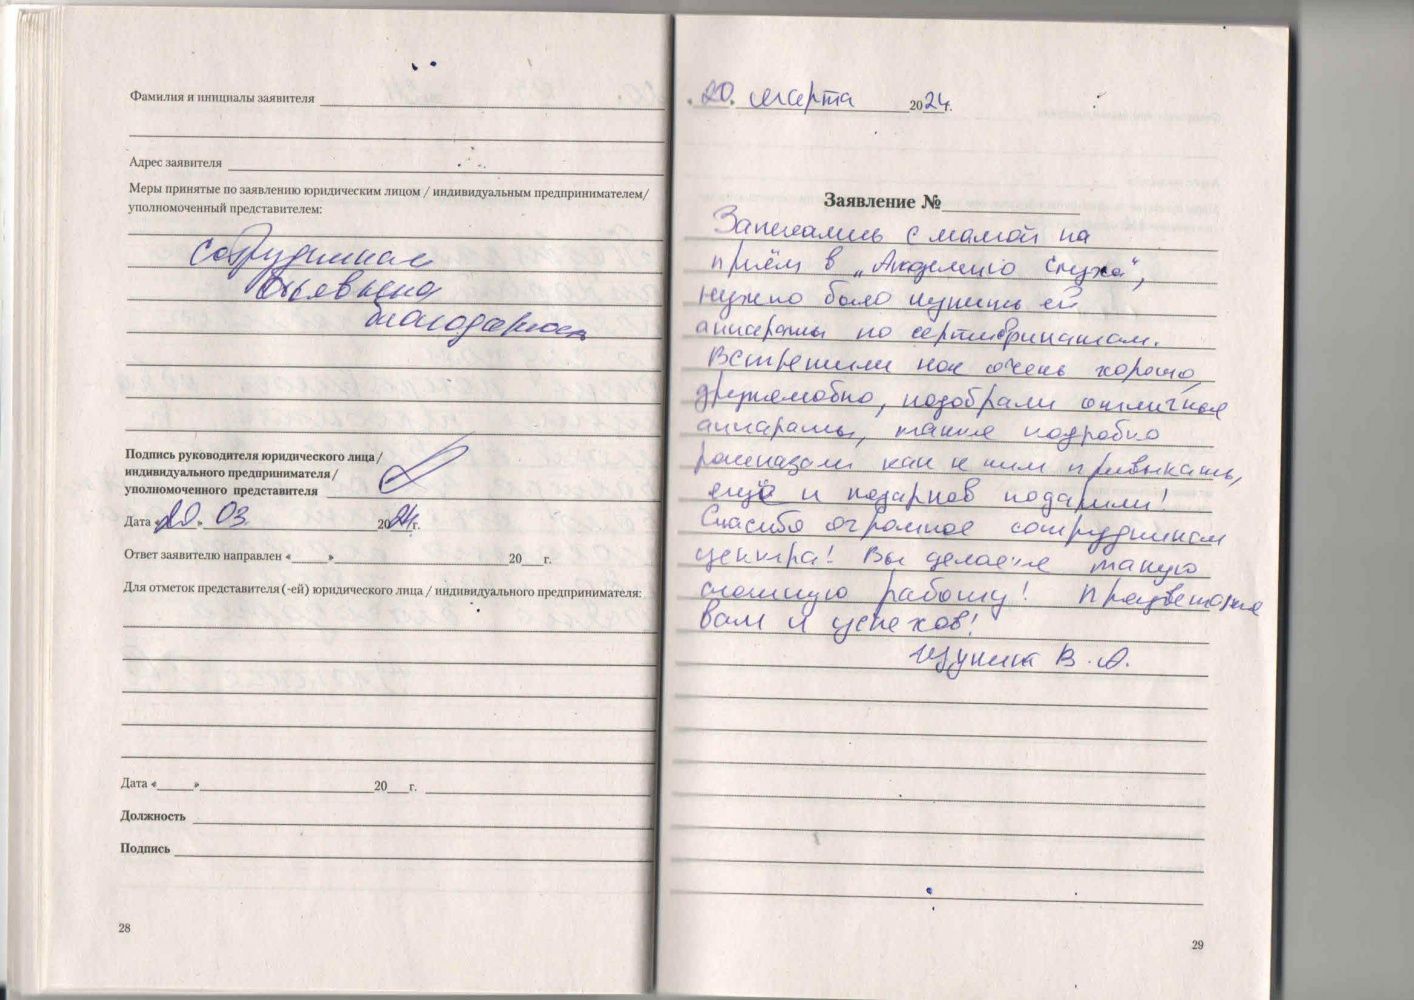 Фамилия и инициалы заявителя
Адрес заявителя
Меры принятые по заявлению юридическим лицом / индивидуальным предпринимателем/
уполномоченный представителем:
Сотрудникам
объявлена
благодарность
Подпись руководителя юридического лица/
индивидуального предпринимателя/
уполномоченного представителя
Дата «20» 03 2024г.
Ответ заявителю направлен «» 20 г.
Для отметок представителя (-ей) юридического лица / индивидуального предпринимателя:
Дата «» 20 г.
Должность
Подпись
28
20. марта 2024г.
Заявление №
Записались с мамой на
приём в „Академию слуха",
нужно было купить ей
аппараты по сертификатам.
Встретили нас очень хорошо,
дружелюбно, подобрали отличные
аппараты, также подробно
рассказали как к ним привыкать,
ещё и подарков подарили!
Спасибо огромное сотрудникам
центра! Вы делаете такую
сложную работу! Процветания
вам и успехов!
В. А.
29